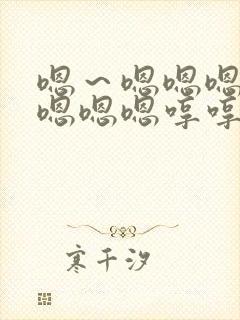 嗯～嗯嗯嗯
嗯嗯嗯哼哼
寒千汐